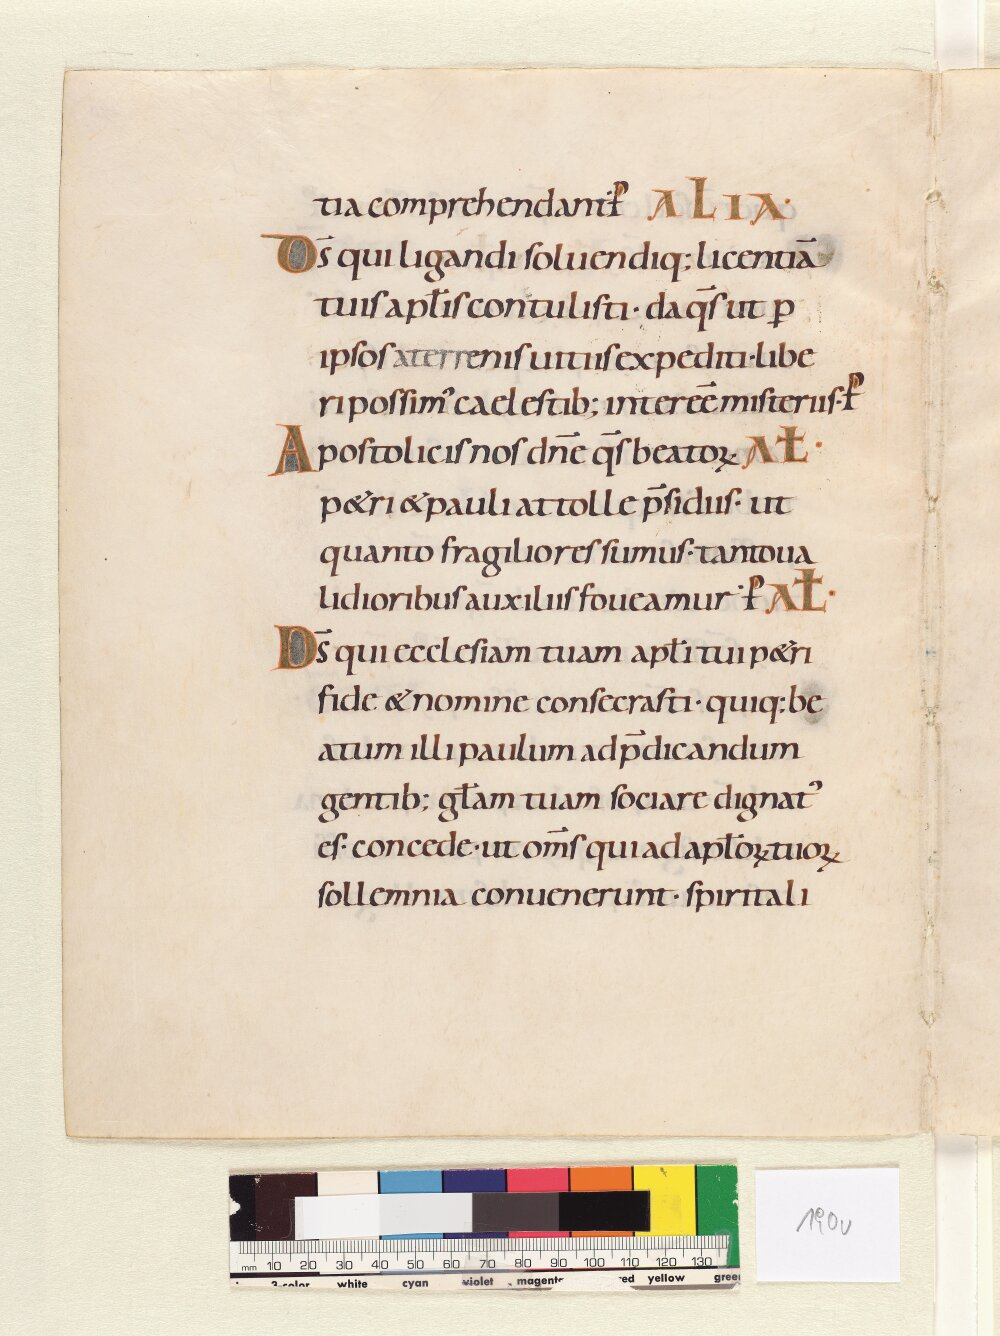 tia comprehendant p̄ ALIA·
D̄s qui ligandi soluendiq; licentiā
tuis apl̄is contulisti· da q̄s ut ꝑ
ipsos aterrenis uitiis expediti· libe
ri possim᾽ caelestib; intereē misteriis· p̄
Apostolicis nos dn̄e q̄s beatoꝝ AŁ·
p&ri & pauli attolle p̄sidiis· ut
quanto fragiliores sumus· tanto ua
lidioribus auxiliis foueamur· p̄ AŁ·
D̄s qui ecclesiam tuam apl̄i tui p&ri
fide & nomine consecrasti· quiq; be
atum illi paulum ad p̄dicandum
gentib; gl̄am tuam sociare dignat᾽
es· concede· ut om̄s qui ad apl̄oꝝ tuoꝝ
sollemnia conuenerunt· spiritali
mm 10 20 30 40 50 60 70 80 90 100 110 120 130
3-color white cyan violet magenta red yellow green
190v